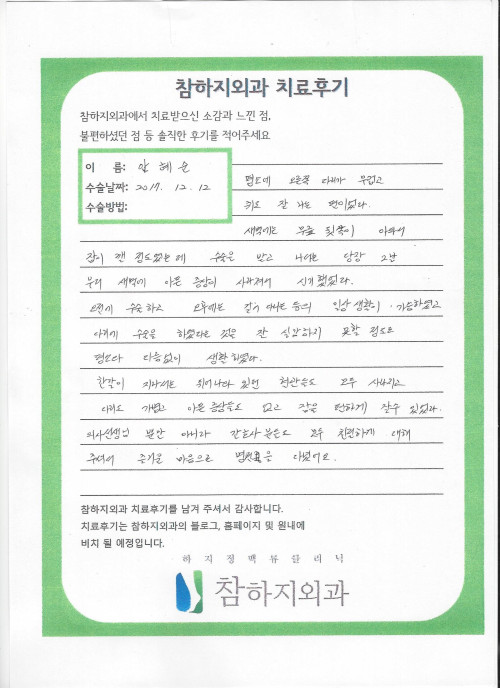 참하지외과 치료후기
참하지외과에서 치료받으신 소감과 느낀 점,
불편하셨던 점 등 솔직한 후기를 적어주세요
이 름: 안혜순
수술날짜: 2017. 12. 12
수술방법:
평소에 오른쪽 다리가 무겁고
쥐도 잘 나는 편이었다.
새벽에는 무릎 뒷쪽이 아파서
잠이 깬 정도였는데 수술을 받고 나서는 당장 그날
부터 새벽에 아픈 증상이 사라져서 신기했었다.
오전에 수술하고 오후에는 걸어 다니는 등의 일상 생활이 가능하였고
다리에 수술을 하였다는 것을 잘 실감하지 못할 정도로
평소와 다름없이 생활하였다.
한달이 지나서는 튀어나와 있던 혈관들도 모두 사라지고
다리도 가볍고 아픈 증상들도 없고 잠을 편하게 잘수 있었다.
의사선생님 뿐만 아니라 간호사 분들도 모두 친절하게 대해
주셔서 즐거운 마음으로 병원을 다녔어요.
참하지외과 치료후기를 남겨 주셔서 감사합니다.
치료후기는 참하지외과의 블로그, 홈페이지 및 원내에
비치 될 예정입니다.
하지정맥류클리닉
참하지외과